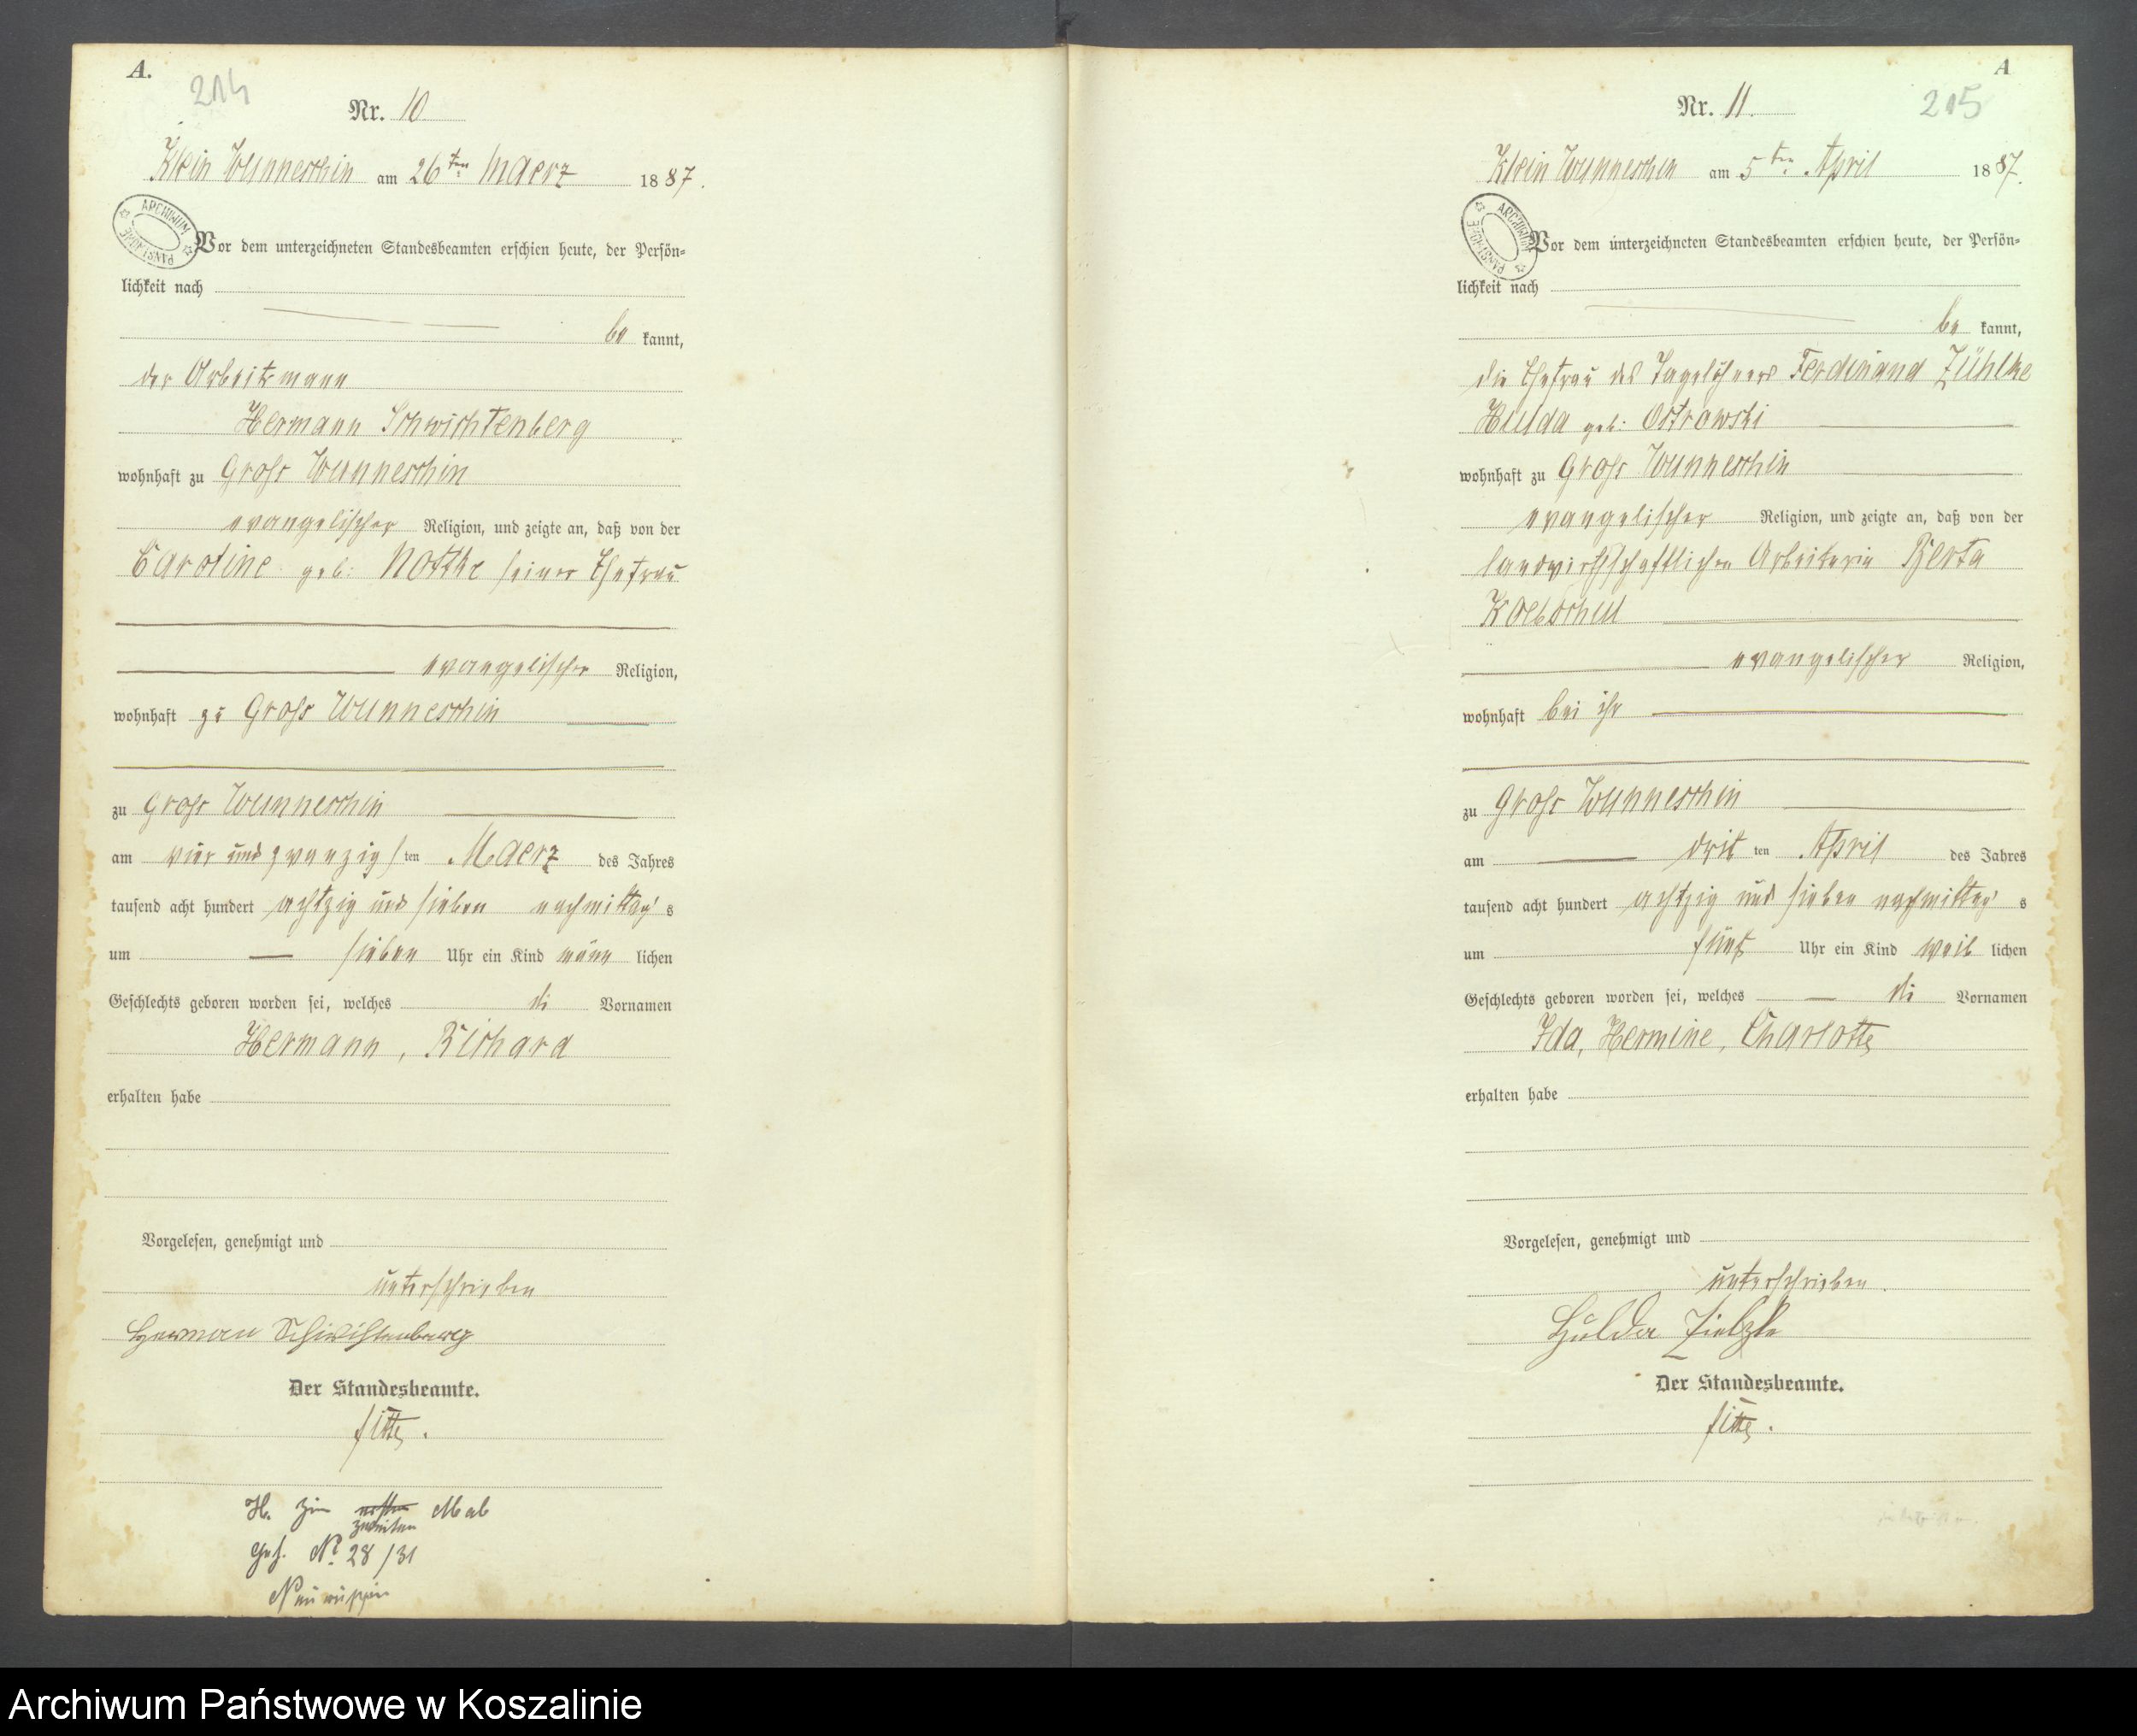 A.
214
Nr. 10
Klein Wunneschin am 26ten Maerz 1887.
ARCHIWUM PAŃSTWOWE
Vor dem unterzeichneten Standesbeamten erschien heute, der Persön-
lichkeit nach
be kannt,
der Arbeitsmann
Hermann Schwichtenberg
wohnhaft zu Gross Wunneschin
evangelischer Religion, und zeigte an, daß von der
Caroline geb: Nottke seiner Ehefrau
evangelischer Religion,
wohnhaft zu Gross Wunneschin
zu Gross Wunneschin
am vier und zwanzigs ten Maerz des Jahres
tausend acht hundert achtzig und sieben nachmittag s
um sieben Uhr ein Kind männ lichen
Geschlechts geboren worden sei, welches die Vornamen
Hermann, Richard
erhalten habe
Vorgelesen, genehmigt und
unterschrieben
Herman Schwichtenberg
Der Standesbeamte.
H. zum ersten zweiten Mal
Gesch. No. 28/31
Neuruppin
A
215
Nr. 11.
Klein Wunneschin am 5ten April 1887.
ARCHIWUM PAŃSTWOWE
Vor dem unterzeichneten Standesbeamten erschien heute, der Persön-
lichkeit nach
be kannt,
die Ehefrau des Tagelöhners Ferdinand Zühlke
Hulda geb: Ostrowski
wohnhaft zu Gross Wunneschin
evangelischer Religion, und zeigte an, daß von der
landwirthschaftlichen Arbeiterin Berta
evangelischer Religion,
wohnhaft bei ihr
zu Gross Wunneschin
am drit ten April des Jahres
tausend acht hundert achtzig und sieben nachmittag s
um fünf Uhr ein Kind weib lichen
Geschlechts geboren worden sei, welches die Vornamen
Ida, Hermine, Charlotte
erhalten habe
Vorgelesen, genehmigt und
unterschrieben.
Hulda
Der Standesbeamte.
Archiwum Państwowe w Koszalinie